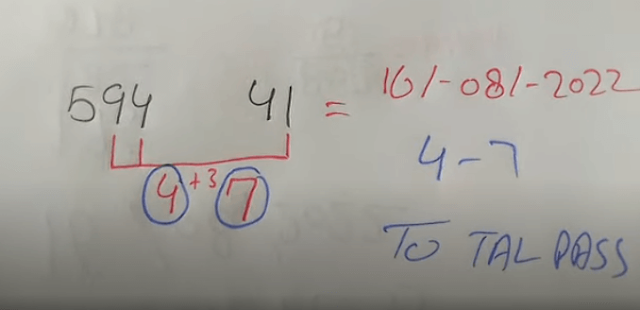 594 41 = 16/-08/-2022
4 +3 7
4-7
TOTAL PASS